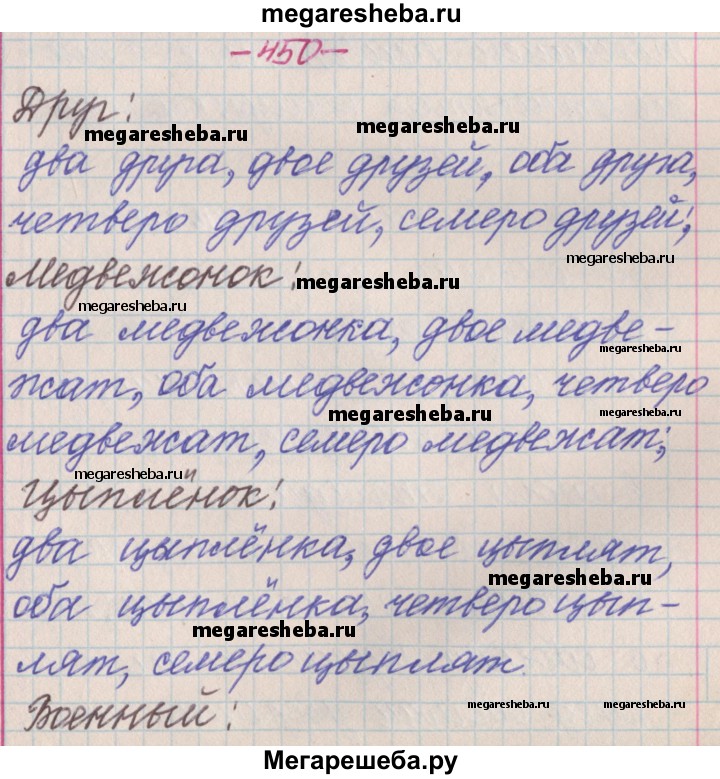 megaresheba.ru
-450-
Друг:
megaresheba.ru
megaresheba.ru
два друга, двое друзей, оба друга,
четверо друзей, семеро друзей;
megaresheba.ru
Медвежонок:
megaresheba.ru
megaresheba.ru
два медвежонка, двое медве-
megaresheba.ru
жат, оба медвежонка, четверо
megaresheba.ru
megaresheba.ru
медвежат, семеро медвежат;
megaresheba.ru
Цыплёнок:
два цыплёнка, двое цыплят,
megaresheba.ru
оба цыплёнка, четверо цып-
megaresheba.ru
лят, семеро цыплят.
Военный:
megaresheba.ru
megaresheba.ru
Мегарешеба.ру